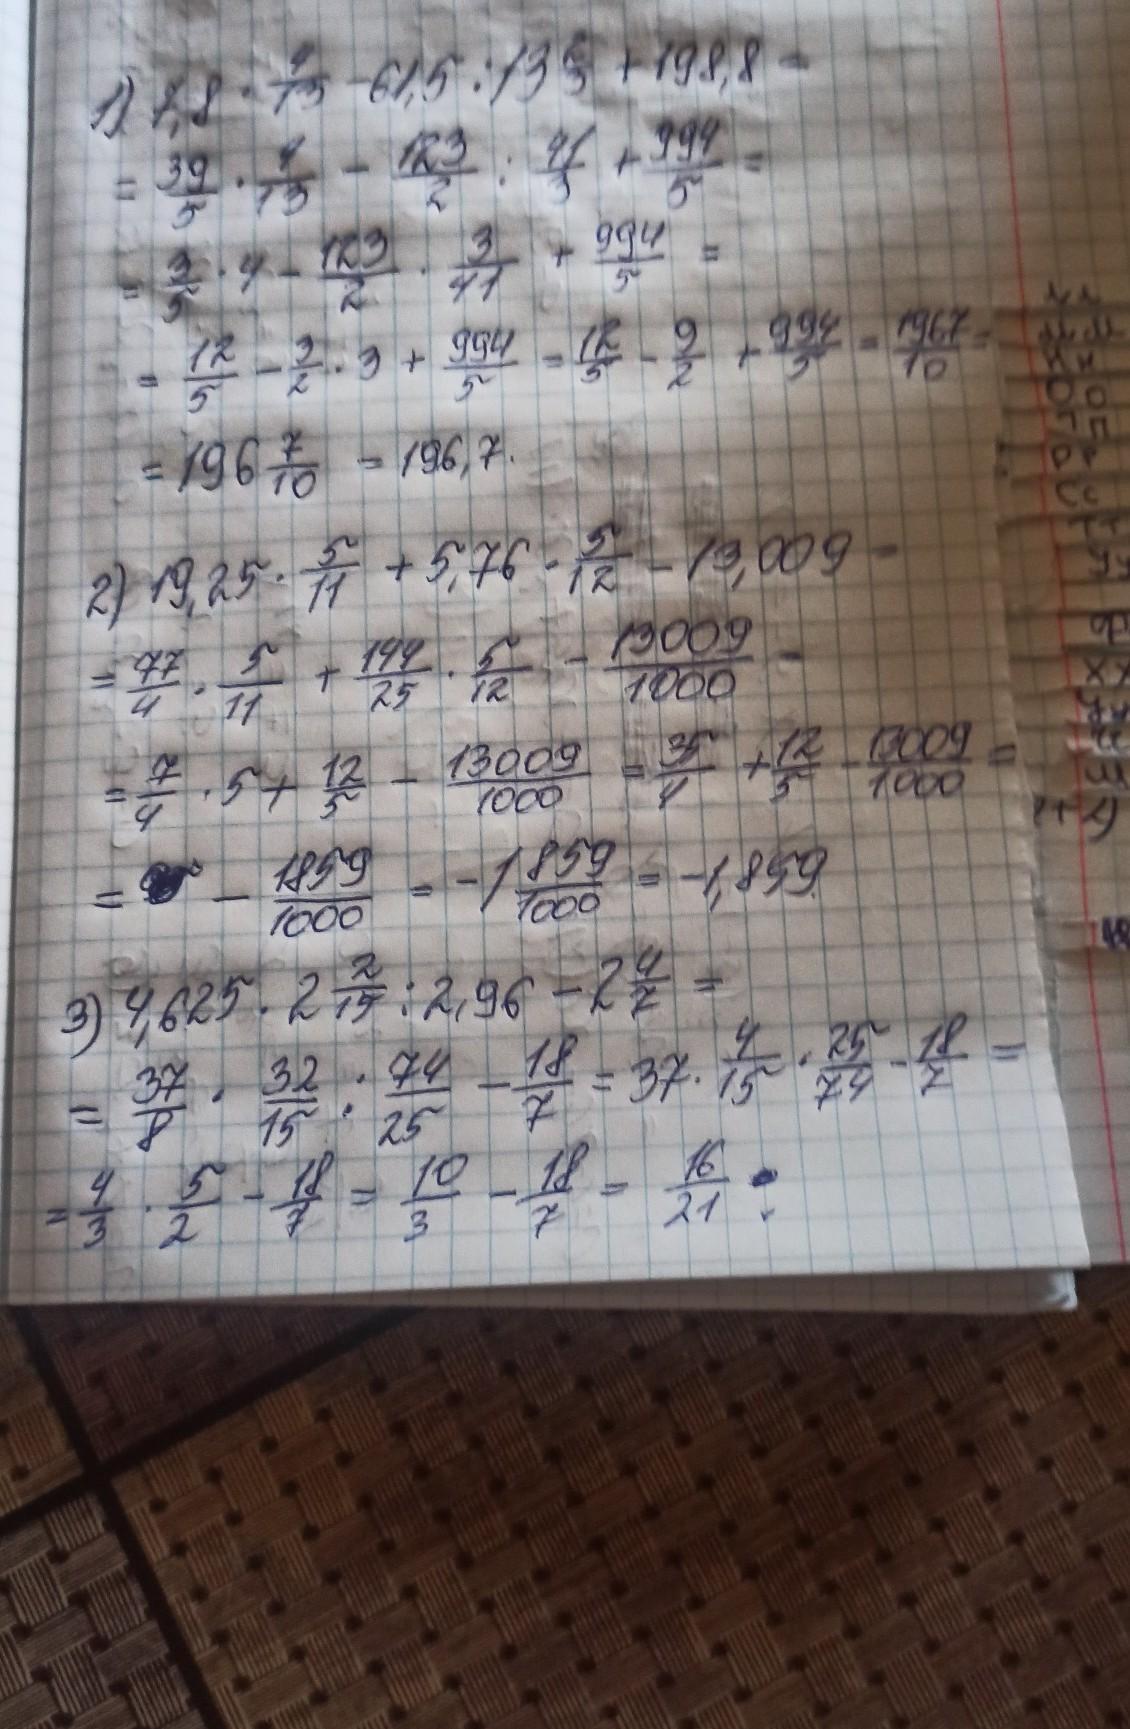 1) 7,8 · 4/13 - 61,5 : 13 2/3 + 198,8 =
= 39/5 · 4/13 - 123/2 : 41/3 + 994/5 =
= 3/5 · 4 - 123/2 · 3/41 + 994/5 =
= 12/5 - 3/2 · 3 + 994/5 = 12/5 - 9/2 + 994/5 = 1967/10 =
= 196 7/10 = 196,7.
2) 19,25 · 5/11 + 5,76 · 5/12 - 13,009 =
= 77/4 · 5/11 + 144/25 · 5/12 - 13009/1000 =
= 7/4 · 5 + 12/5 - 13009/1000 = 35/4 + 12/5 - 13009/1000 =
= - 1859/1000 = -1 859/1000 = -1,859.
3) 4,625 · 2 2/15 : 2,96 - 2 4/7 =
= 37/8 · 32/15 : 74/25 - 18/7 = 37 · 4/15 · 25/74 - 18/7 =
= 4/3 · 5/2 - 18/7 = 10/3 - 18/7 = 16/21
Мм
Нн
Оо
Пп
Рр
Сс
Тт
Уу
Хх